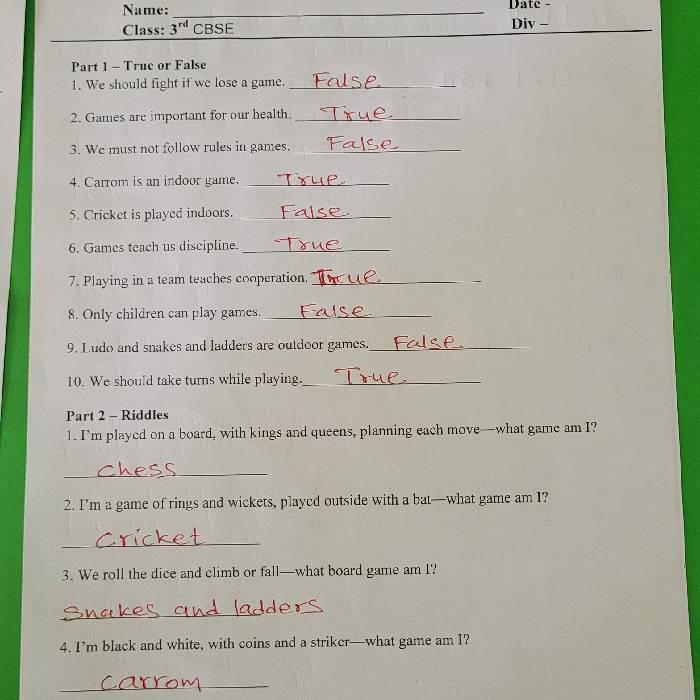 Name: ____________ Date -
Class: 3rd CBSE Div –
Part 1 – True or False
1. We should fight if we lose a game. False
2. Games are important for our health. True
3. We must not follow rules in games. False
4. Carrom is an indoor game. True
5. Cricket is played indoors. False
6. Games teach us discipline. True
7. Playing in a team teaches cooperation. True
8. Only children can play games. False
9. Ludo and snakes and ladders are outdoor games. False
10. We should take turns while playing. True
Part 2 – Riddles
1. I'm played on a board, with kings and queens, planning each move—what game am I?
chess
2. I'm a game of rings and wickets, played outside with a bat—what game am I?
Cricket
3. We roll the dice and climb or fall—what board game am I?
Snakes and ladders
4. I'm black and white, with coins and a striker—what game am I?
Carrom